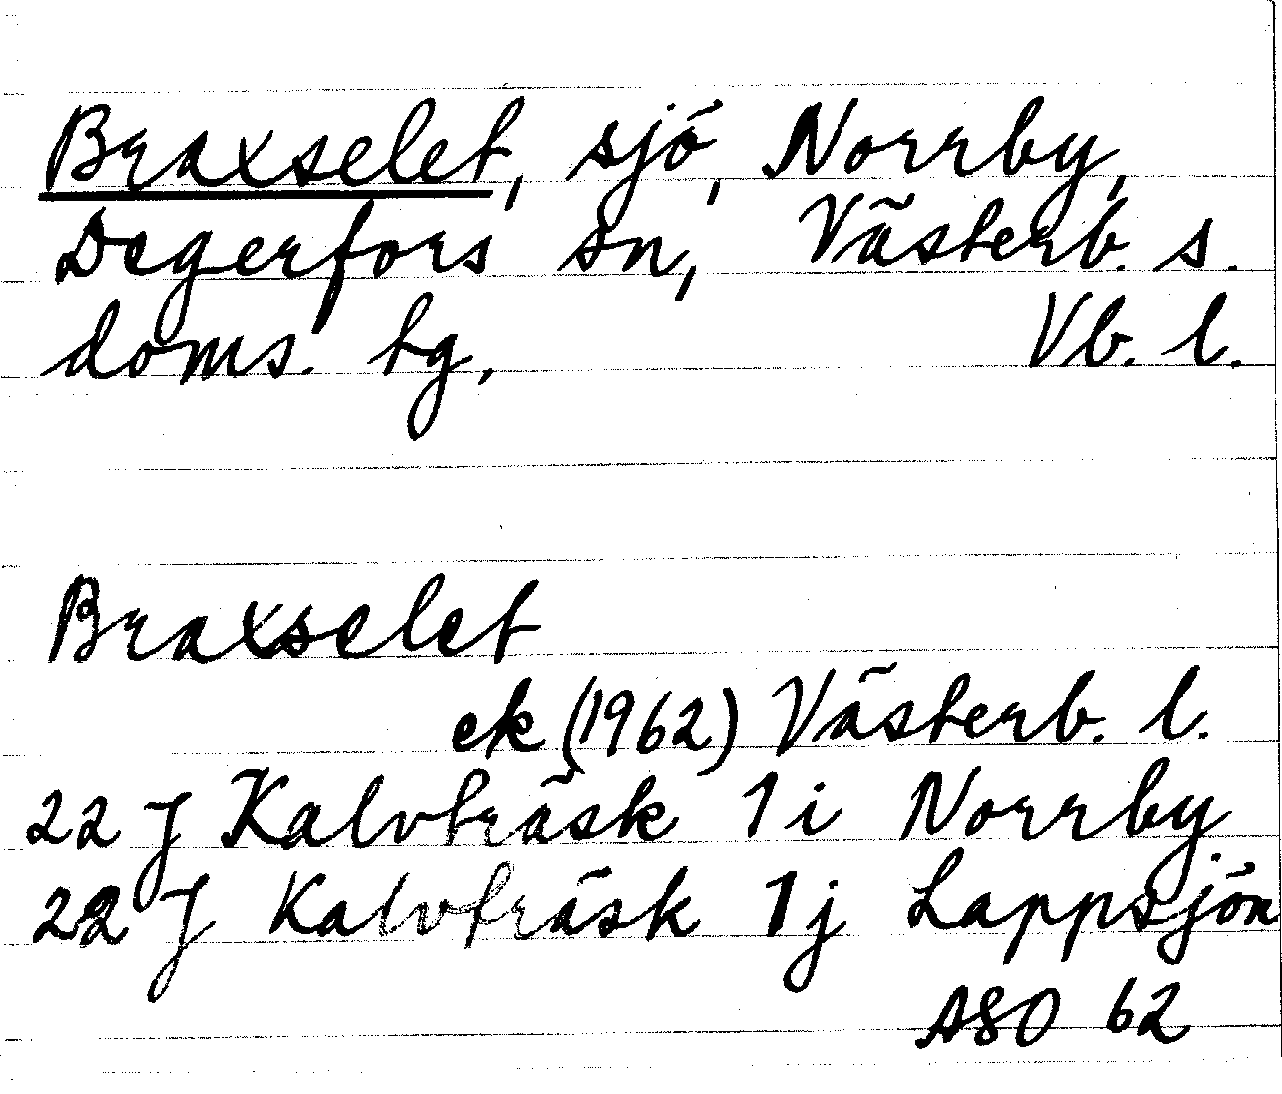 Braxselet, sjö, Norrby,
Degerfors sn, Västerb. s.
doms. tg, Vb. l.
Braxselet
ek (1962) Västerb. l.
22 J Kalvträsk 1 i Norrby
22 J Kalvträsk 1 j Lappsjön
ASO 62